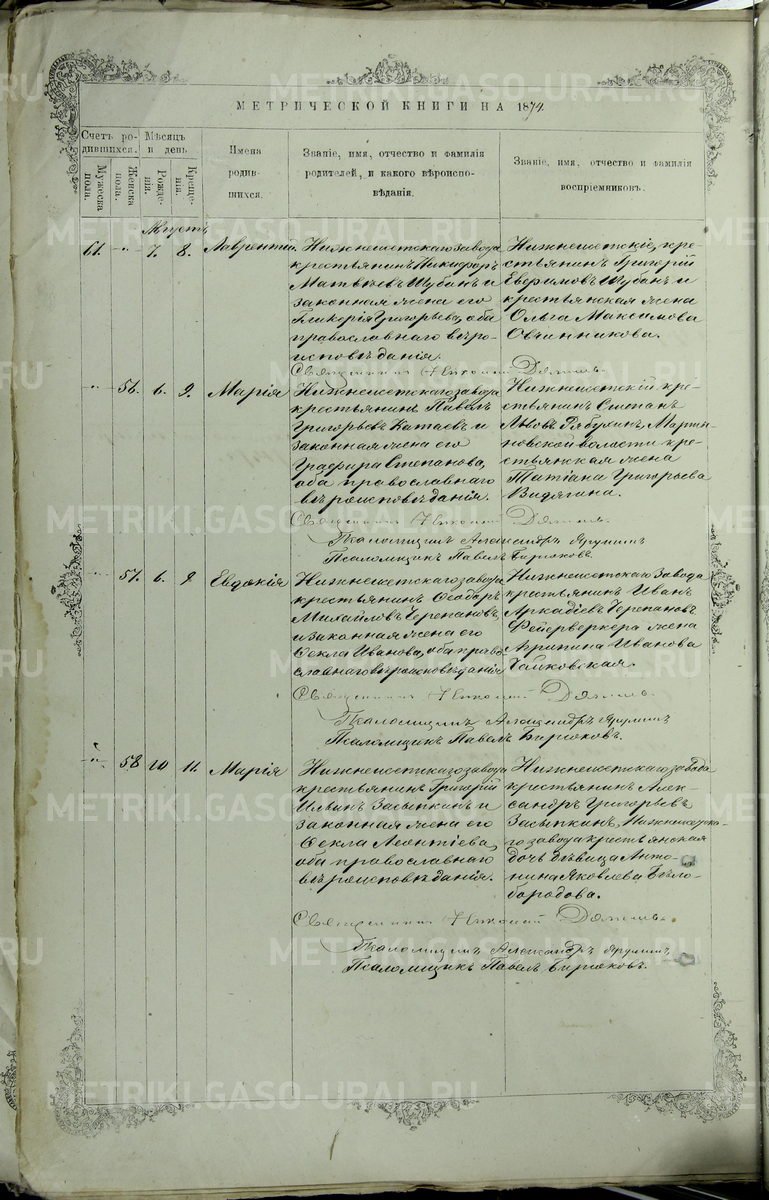 МЕТРИЧЕСКОЙ КНИГИ НА 1874.
Счетъ ро-
дившихся.
Мужеска
пола.
Женска
пола.
Мѣсяцъ
и день
Рожде-
нія.
Креще-
нія.
Имена
родив-
шихся.
Званіе, имя, отчество и фамилія
родителей, и какого вѣроиспо-
вѣданія.
Званіе, имя, отчество и фамилія
воспріемниковъ.
Августъ
61. " 7. 8. Лаврентій.
Нижнеисетскаго завода
крестьянинъ Никифоръ
Матвѣевъ Шубинъ и
законная жена его
Гликерія Григорьева, оба
православнаго вѣро-
исповѣданія.
Нижнеисетскіе, кре-
стьянинъ Григорій
Евфимовъ Шубинъ и
крестьянская жена
Ольга Максимова
Овчинникова.
Священникъ Николай
" 56. 6. 9. Марія
Нижнеисетскаго завода
крестьянинъ Павелъ
Григорьевъ Катаевъ и
законная жена его
Графира Степанова,
оба православнаго
вѣроисповѣданія.
Нижнеисетскій кре-
стьянинъ Степанъ
Львовъ Рябухинъ, Мартин-
новской волости кре-
стьянская жена
Татіана Григорьева
Видягина.
Священникъ Николай
Псаломщикъ Александръ
Псаломщикъ Павелъ Бирюковъ.
" 57. 6. 9. Евдокія
Нижнеисетскаго завода
крестьянинъ Ѳеодоръ
Михайловъ Черепановъ,
и законная жена его
Ѳекла Иванова, оба право-
славнаго вѣроисповѣданія
Нижнеисетскаго завода
крестьянинъ Иванъ
Аркадіевъ Черепановъ
Фейерверкера жена
Агрипина Иванова
Священникъ Николай
Псаломщикъ Александръ
Псаломщикъ Павелъ Бирюковъ.
" 58 10 11. Марія
Нижнеисетскаго завода
крестьянинъ Григорій
Ильинъ Засыпкинъ и
законная жена его
Ѳекла Леонтіева,
оба православнаго
вѣроисповѣданія.
Нижнеисетскаго завода
крестьянинъ Алек-
сандръ Григорьевъ
Засыпкинъ, Нижнеисетска-
го завода крестьянская
дочь дѣвица Анто-
нина Яковлева Бѣло-
бородова.
Священникъ Николай
Псаломщикъ Александръ
Псаломщикъ Павелъ Бирюковъ.
METRIKI.GASO-URAL.RU